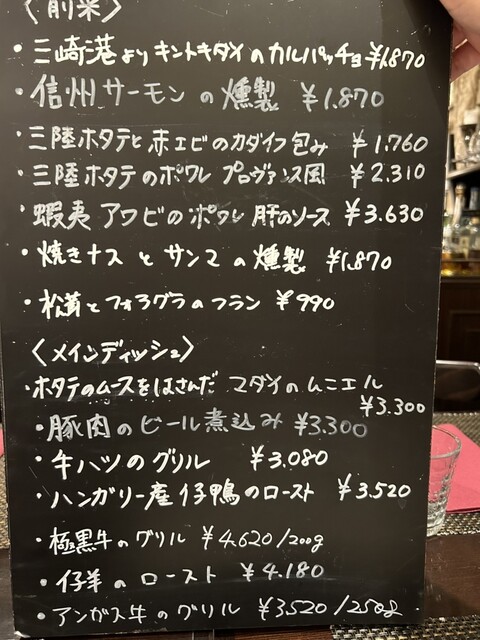 〈前菜〉
・三崎港よりキントキダイのカルパッチョ ¥1,870
・信州サーモンの燻製 ¥1,870
・三陸ホタテと赤エビのカダイフ包み ¥1,760
・三陸ホタテのポワレ プロヴァンス風 ¥2,310
・蝦夷アワビのポワレ 肝のソース ¥3,630
・焼きナスとサンマの燻製 ¥1,870
・松茸とフォアグラのフラン ¥990
〈メインディッシュ〉
・ホタテのムースをはさんだ マダイのムニエル
¥3,300
・豚肉のビール煮込み ¥3,300
・牛ハツのグリル ¥3,080
・ハンガリー産仔鴨のロースト ¥3,520
・極黒牛のグリル ¥4,620/200g
・仔羊のロースト ¥4,180
・アンガス牛のグリル ¥3,520/250g